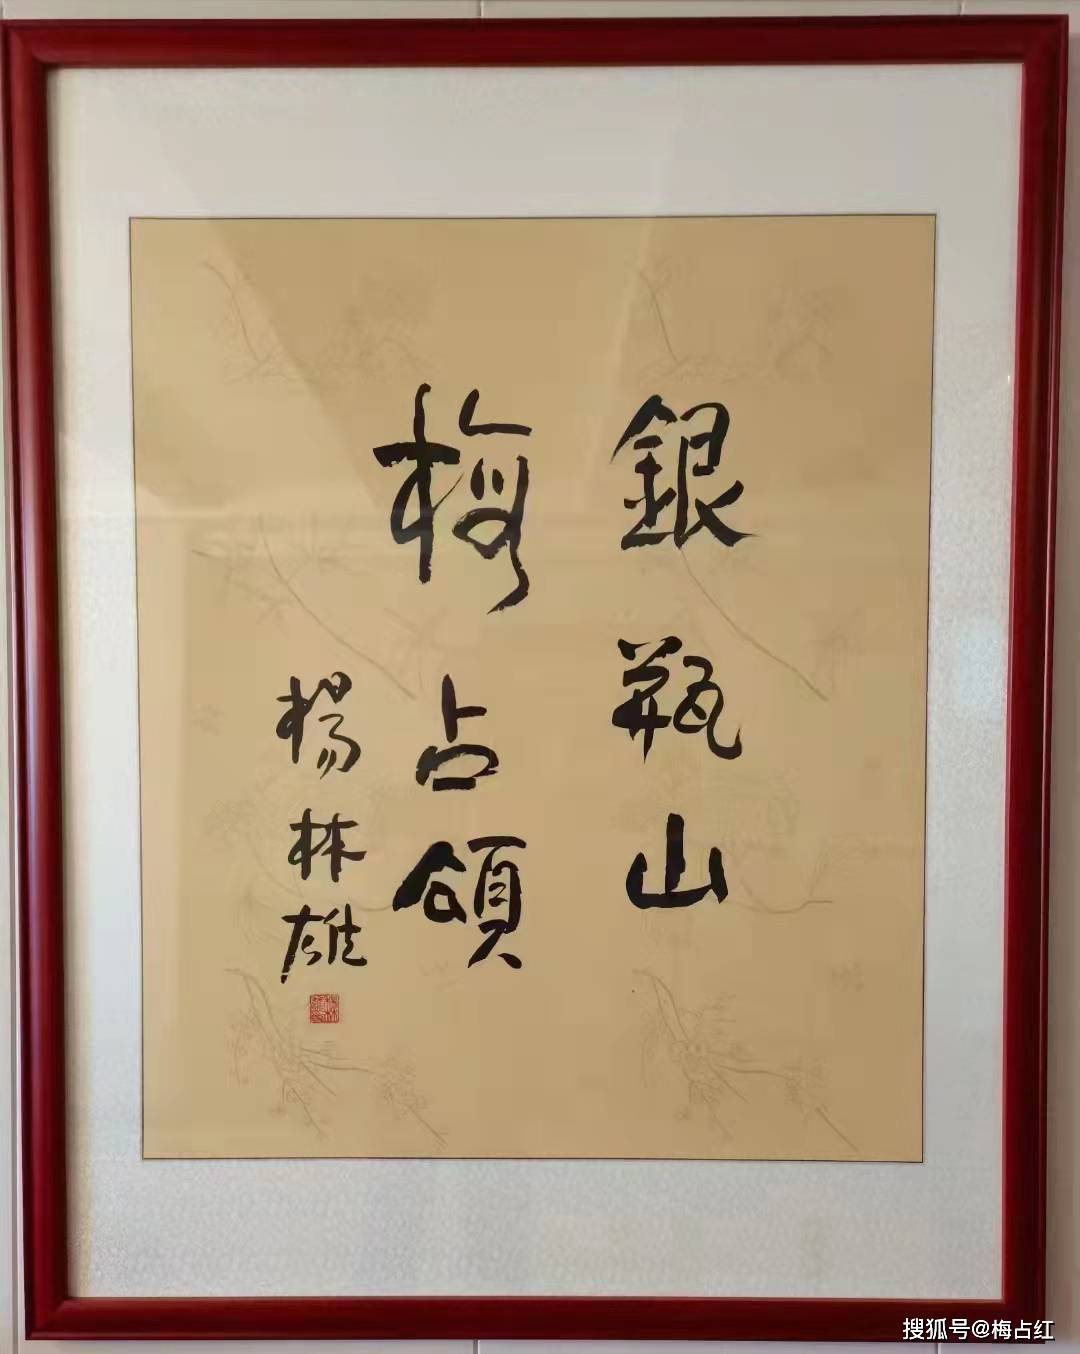 銀瓶山
梅占頌
楊林雄
搜狐号@梅占红